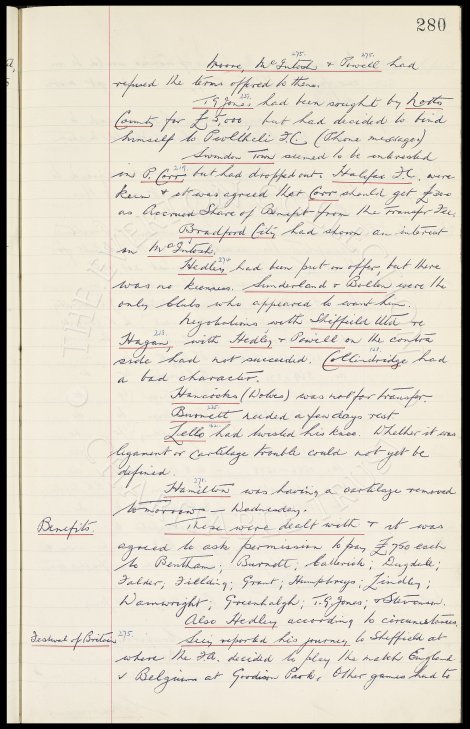 280
Moore, McIntosh & Powell had
275. 275.
refused the terms offered to them.
T.G. Jones had been sought by Notts
251.
County for £5,000 but had decided to bind
himself to Pwllheli F.C. (Phone messages)
Swindon Town seemed to be interested
in P. Corr but had dropped out. Halifax F.C. were
219.
keen & it was agreed that Corr should get £300
as Accrued Share of Benefit from the Transfer Fee.
Bradford City had shown an interest
in McIntosh.
Hedley had been put on offer but there
274.
was no keenness. Sunderland & Bolton were the
only Clubs who appeared to want him.
Negotiations with Sheffield Utd re
Hagan, with Hedley & Powell on the contra
side had not succeeded. Collindridge had
a bad character.
Hancocks (Wolves) was not for transfer.
Burnett needed a few days rest
Lello had twisted his knee. Whether it was
ligament or cartilage trouble could not yet be
defined.
Hamilton was having a cartilage removed
271.
tomorrow - Wednesday.
Benefits. These were dealt with & it was
agreed to ask permission to pay £750 each
to Bentham; Burnett; Catterick; Dugdale;
Falder; Fielding; Grant; Humphreys; Lindley;
Wainwright; Greenhalgh; T.G. Jones; & Stevenson.
Also Hedley according to circumstances.
Festival of Britain 275. Secy reported his journey to Sheffield at
where the F.A. decided to play the match England
v Belgium at Goodison Park. Other games had to